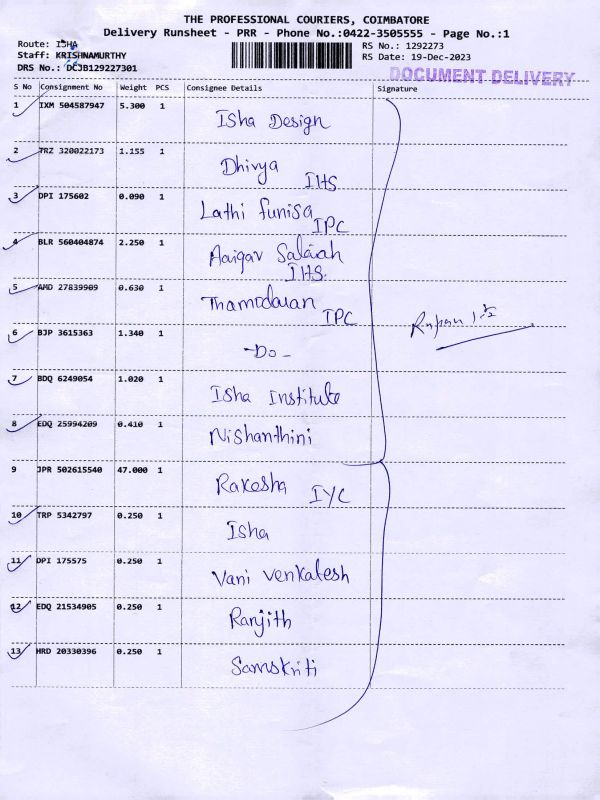 THE PROFESSIONAL COURIERS, COIMBATORE
Delivery Runsheet - PRR - Phone No.:0422-3505555 - Page No.:1
Route: ISHA
RS No.: 1292273
Staff: KRISHNAMURTHY
RS Date: 19-Dec-2023
DRS No.: DCJB129227301
DOCUMENT DELIVERY
S No Consignment No Weight PCS Consignee Details Signature
1 IXM 504587947 5.300 1
Isha Design
2 TRZ 320022173 1.155 1
Dhivya
IHS
3 DPI 175602 0.090 1
Lathi funisa
IPC
4 BLR 560404874 2.250 1
IHS.
5 AMD 27839909 0.630 1
Thamodaran
IPC
6 BJP 3615363 1.340 1
-Do-
7 BDQ 6249054 1.020 1
Isha Institute
8 EDQ 25994209 0.410 1
Nishanthini
9 JPR 502615540 47.000 1
Rakesha IYC
10 TRP 5342797 0.250 1
Isha
11 DPI 175575 0.250 1
Vani Venkatesh
12 EDQ 21534905 0.250 1
Ranjith
13 HRD 20330396 0.250 1
Samskriti